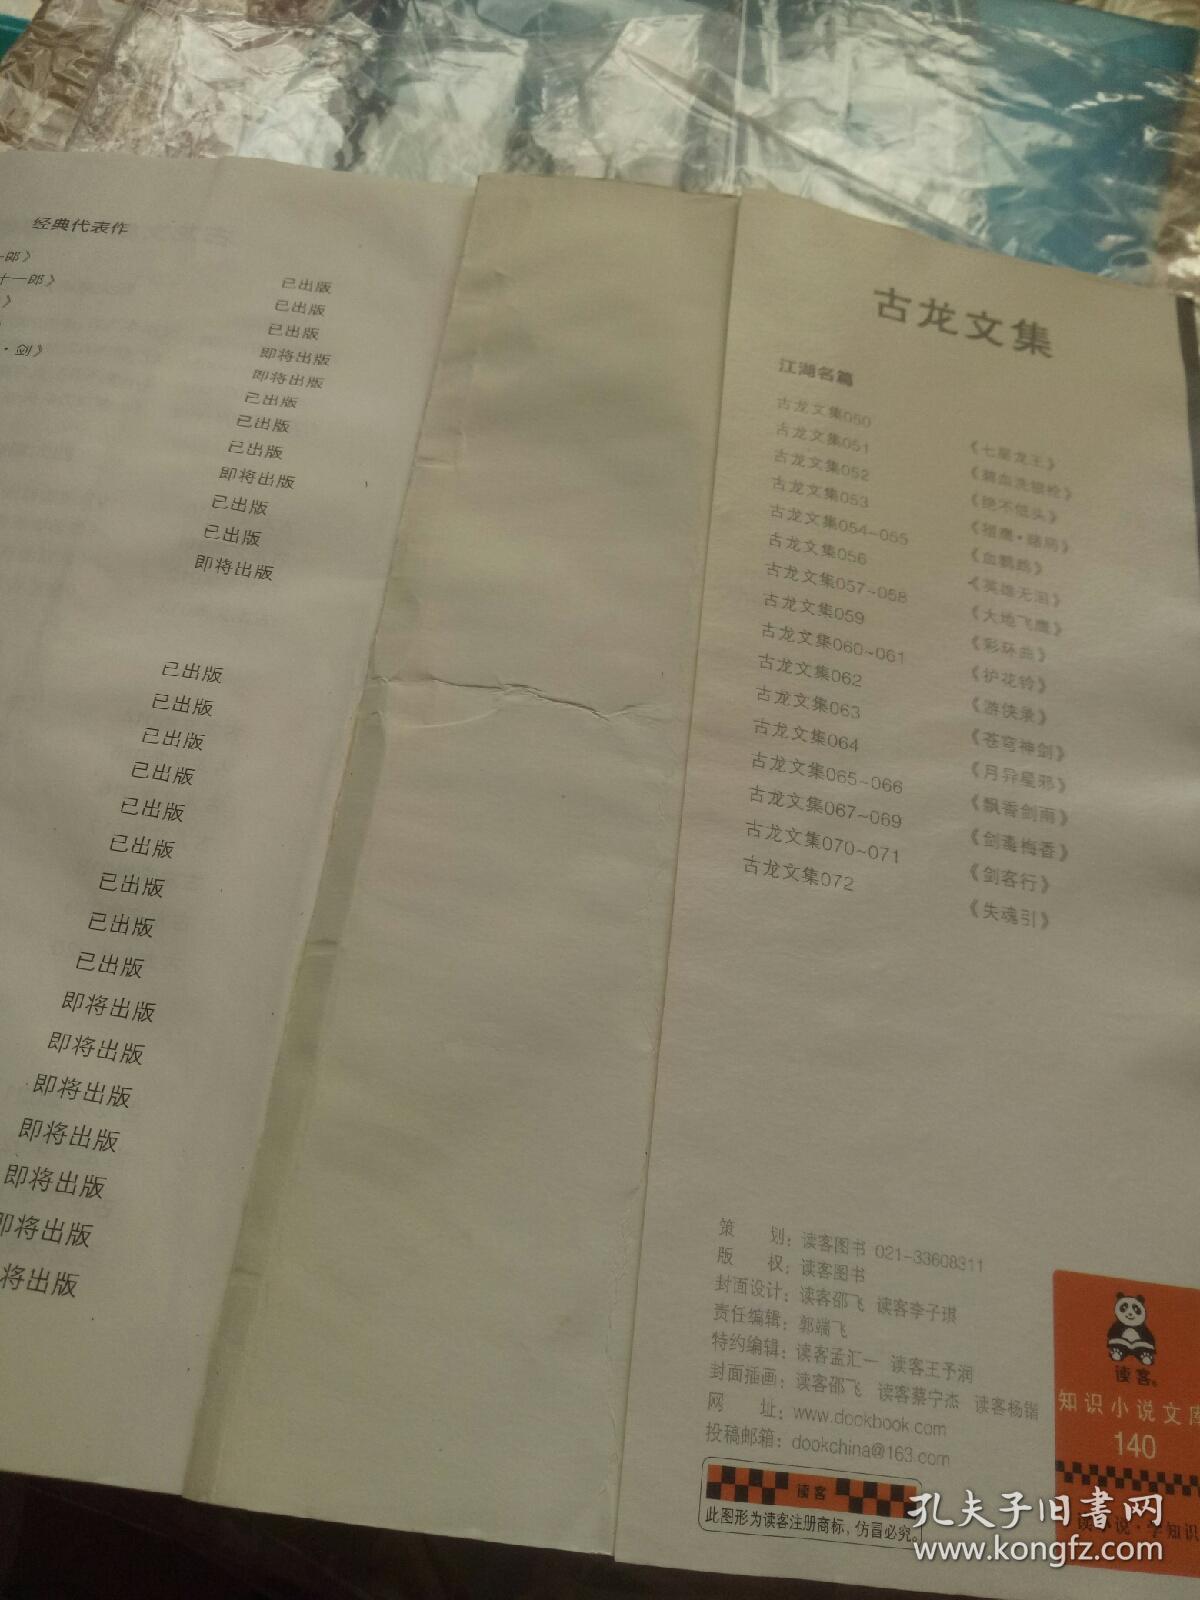 经典代表作
一郎》
十一郎》
》
·剑》
已出版
已出版
已出版
即将出版
即将出版
已出版
已出版
已出版
即将出版
已出版
已出版
即将出版
已出版
已出版
已出版
已出版
已出版
已出版
已出版
已出版
已出版
即将出版
即将出版
即将出版
即将出版
即将出版
即将出版
将出版
古龙文集
江湖名篇
古龙文集050 《七星龙王》
古龙文集051 《碧血洗银枪》
古龙文集052 《绝不低头》
古龙文集053 《猎鹰·赌局》
古龙文集054~055 《血鹦鹉》
古龙文集056 《英雄无泪》
古龙文集057~058 《大地飞鹰》
古龙文集059 《彩环曲》
古龙文集060~061 《护花铃》
古龙文集062 《游侠录》
古龙文集063 《苍穹神剑》
古龙文集064 《月异星邪》
古龙文集065~066 《飘香剑雨》
古龙文集067~069 《剑毒梅香》
古龙文集070~071 《剑客行》
古龙文集072 《失魂引》
策 划：读客图书 021-33608311
版 权：读客图书
封面设计：读客邵飞 读客李子琪
责任编辑：郭端飞
特约编辑：读客孟汇一 读客王予润
封面插画：读客邵飞 读客蔡宁杰 读客杨锴
网 址：www.dookbook.com
投稿邮箱：dookchina@163.com
读客
此图形为读客注册商标，仿冒必究。
读客®
知识小说文库
140
读小说·学知识
孔夫子旧书网
www.kongfz.com